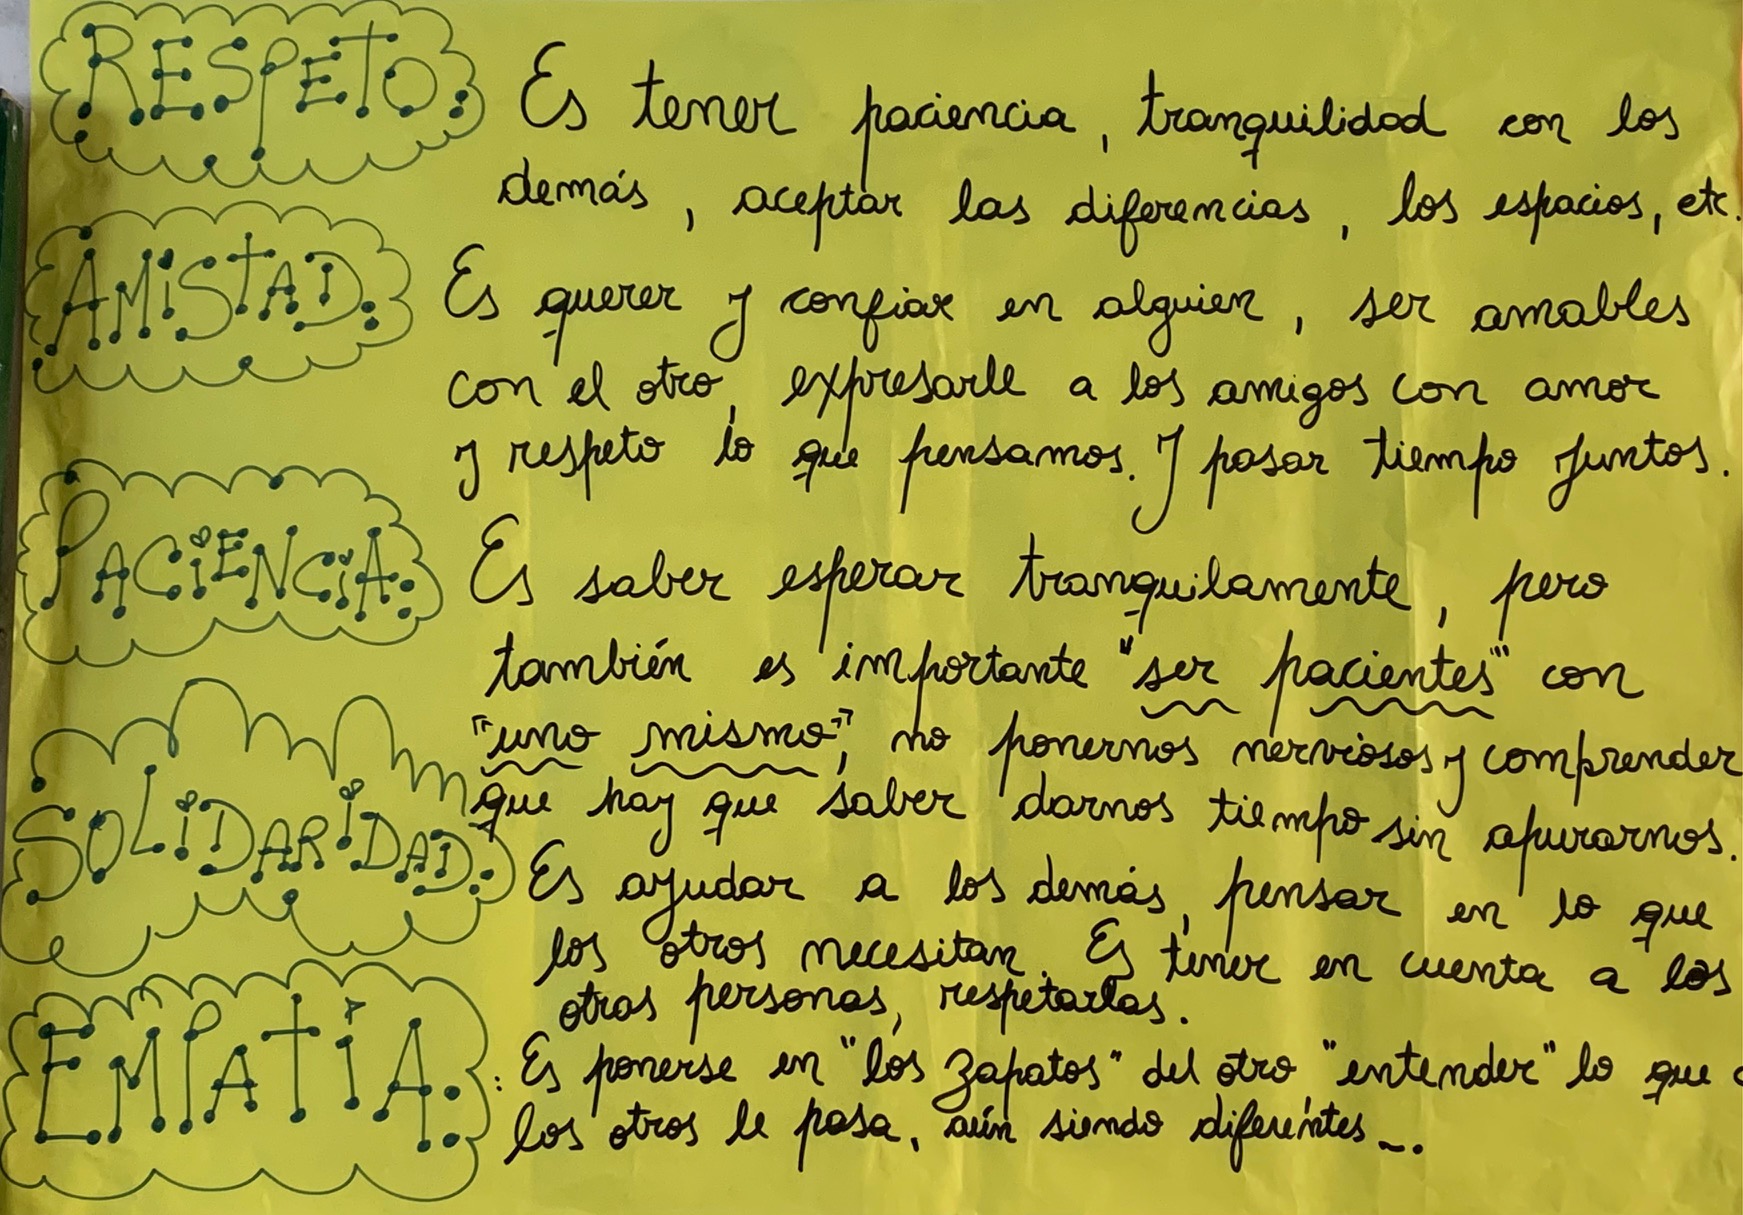 RESPETO: Es tener paciencia, tranquilidad con los
demás, aceptar las diferencias, los espacios, etc.
AMISTAD: Es querer y confiar en alguien, ser amables
con el otro, expresarle a los amigos con amor
y respeto lo que pensamos. Y pasar tiempo juntos.
PACIENCIA: Es saber esperar tranquilamente, pero
también es importante "ser pacientes" con
"uno mismo", no ponernos nerviosos y comprender
que hay que saber darnos tiempo sin apurarnos.
SOLIDARIDAD: Es ayudar a los demás, pensar en lo que
los otros necesitan. Es tener en cuenta a los
otras personas, respetarlas.
EMPATÍA: : Es ponerse en "los zapatos" del otro "entender" lo que
los otros le pasa, aún siendo diferentes...